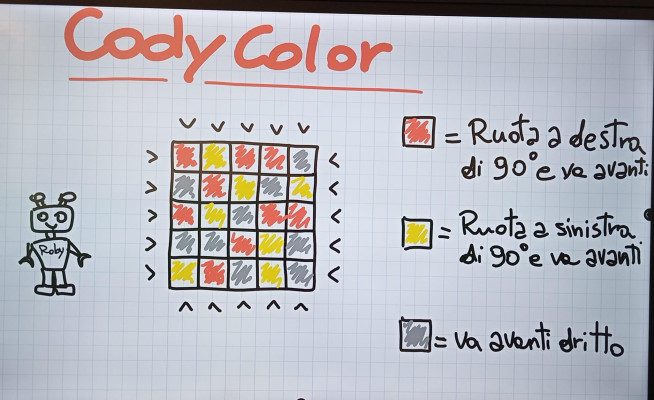 Cody Color
= Ruota a destra
di 90° e va avanti
= Ruota a sinistra
di 90° e va avanti
Roby
= va avanti dritto